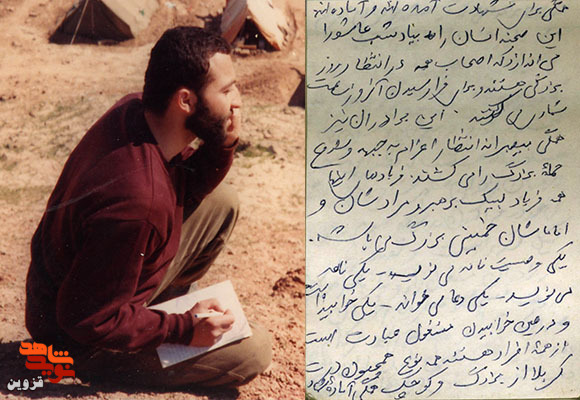 همگی برای شهادت آمده اند و آماده اند
این صحنه انسان را به یاد شب عاشورا
می اندازد که اصحاب همه در انتظار روز
بزرگی هستند و برای فرا رسیدن آنروز
شماری می کنند. این برادران نیز
همگی بیصبرانه انتظار اعزام به جبهه و شروع
حملهٔ بزرگ را می کشند. فریادها
همه فریاد لبیک به رهبر و مرادشان و
امامشان خمینی بزرگ می باشد.
یکی وصیت نامه می نویسد - یکی نامه
می نویسد - یکی دعا می خواند - یکی خوابیده
و در عین خوابیدن مشغول عبادت است
از همهٔ افراد هستند همه نوع
کربلا از بزرگ و کوچک همگی آماده
شاهد
نوید
قزوین